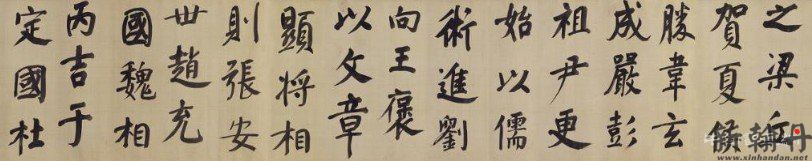 之梁丘
賀夏侯
勝韋玄
成嚴彭
祖尹更
始以儒
術進劉
向王褒
以文章
顯將相
則張安
世趙充
國魏相
丙吉于
定國杜
新翰丹
www.sinhandan.net